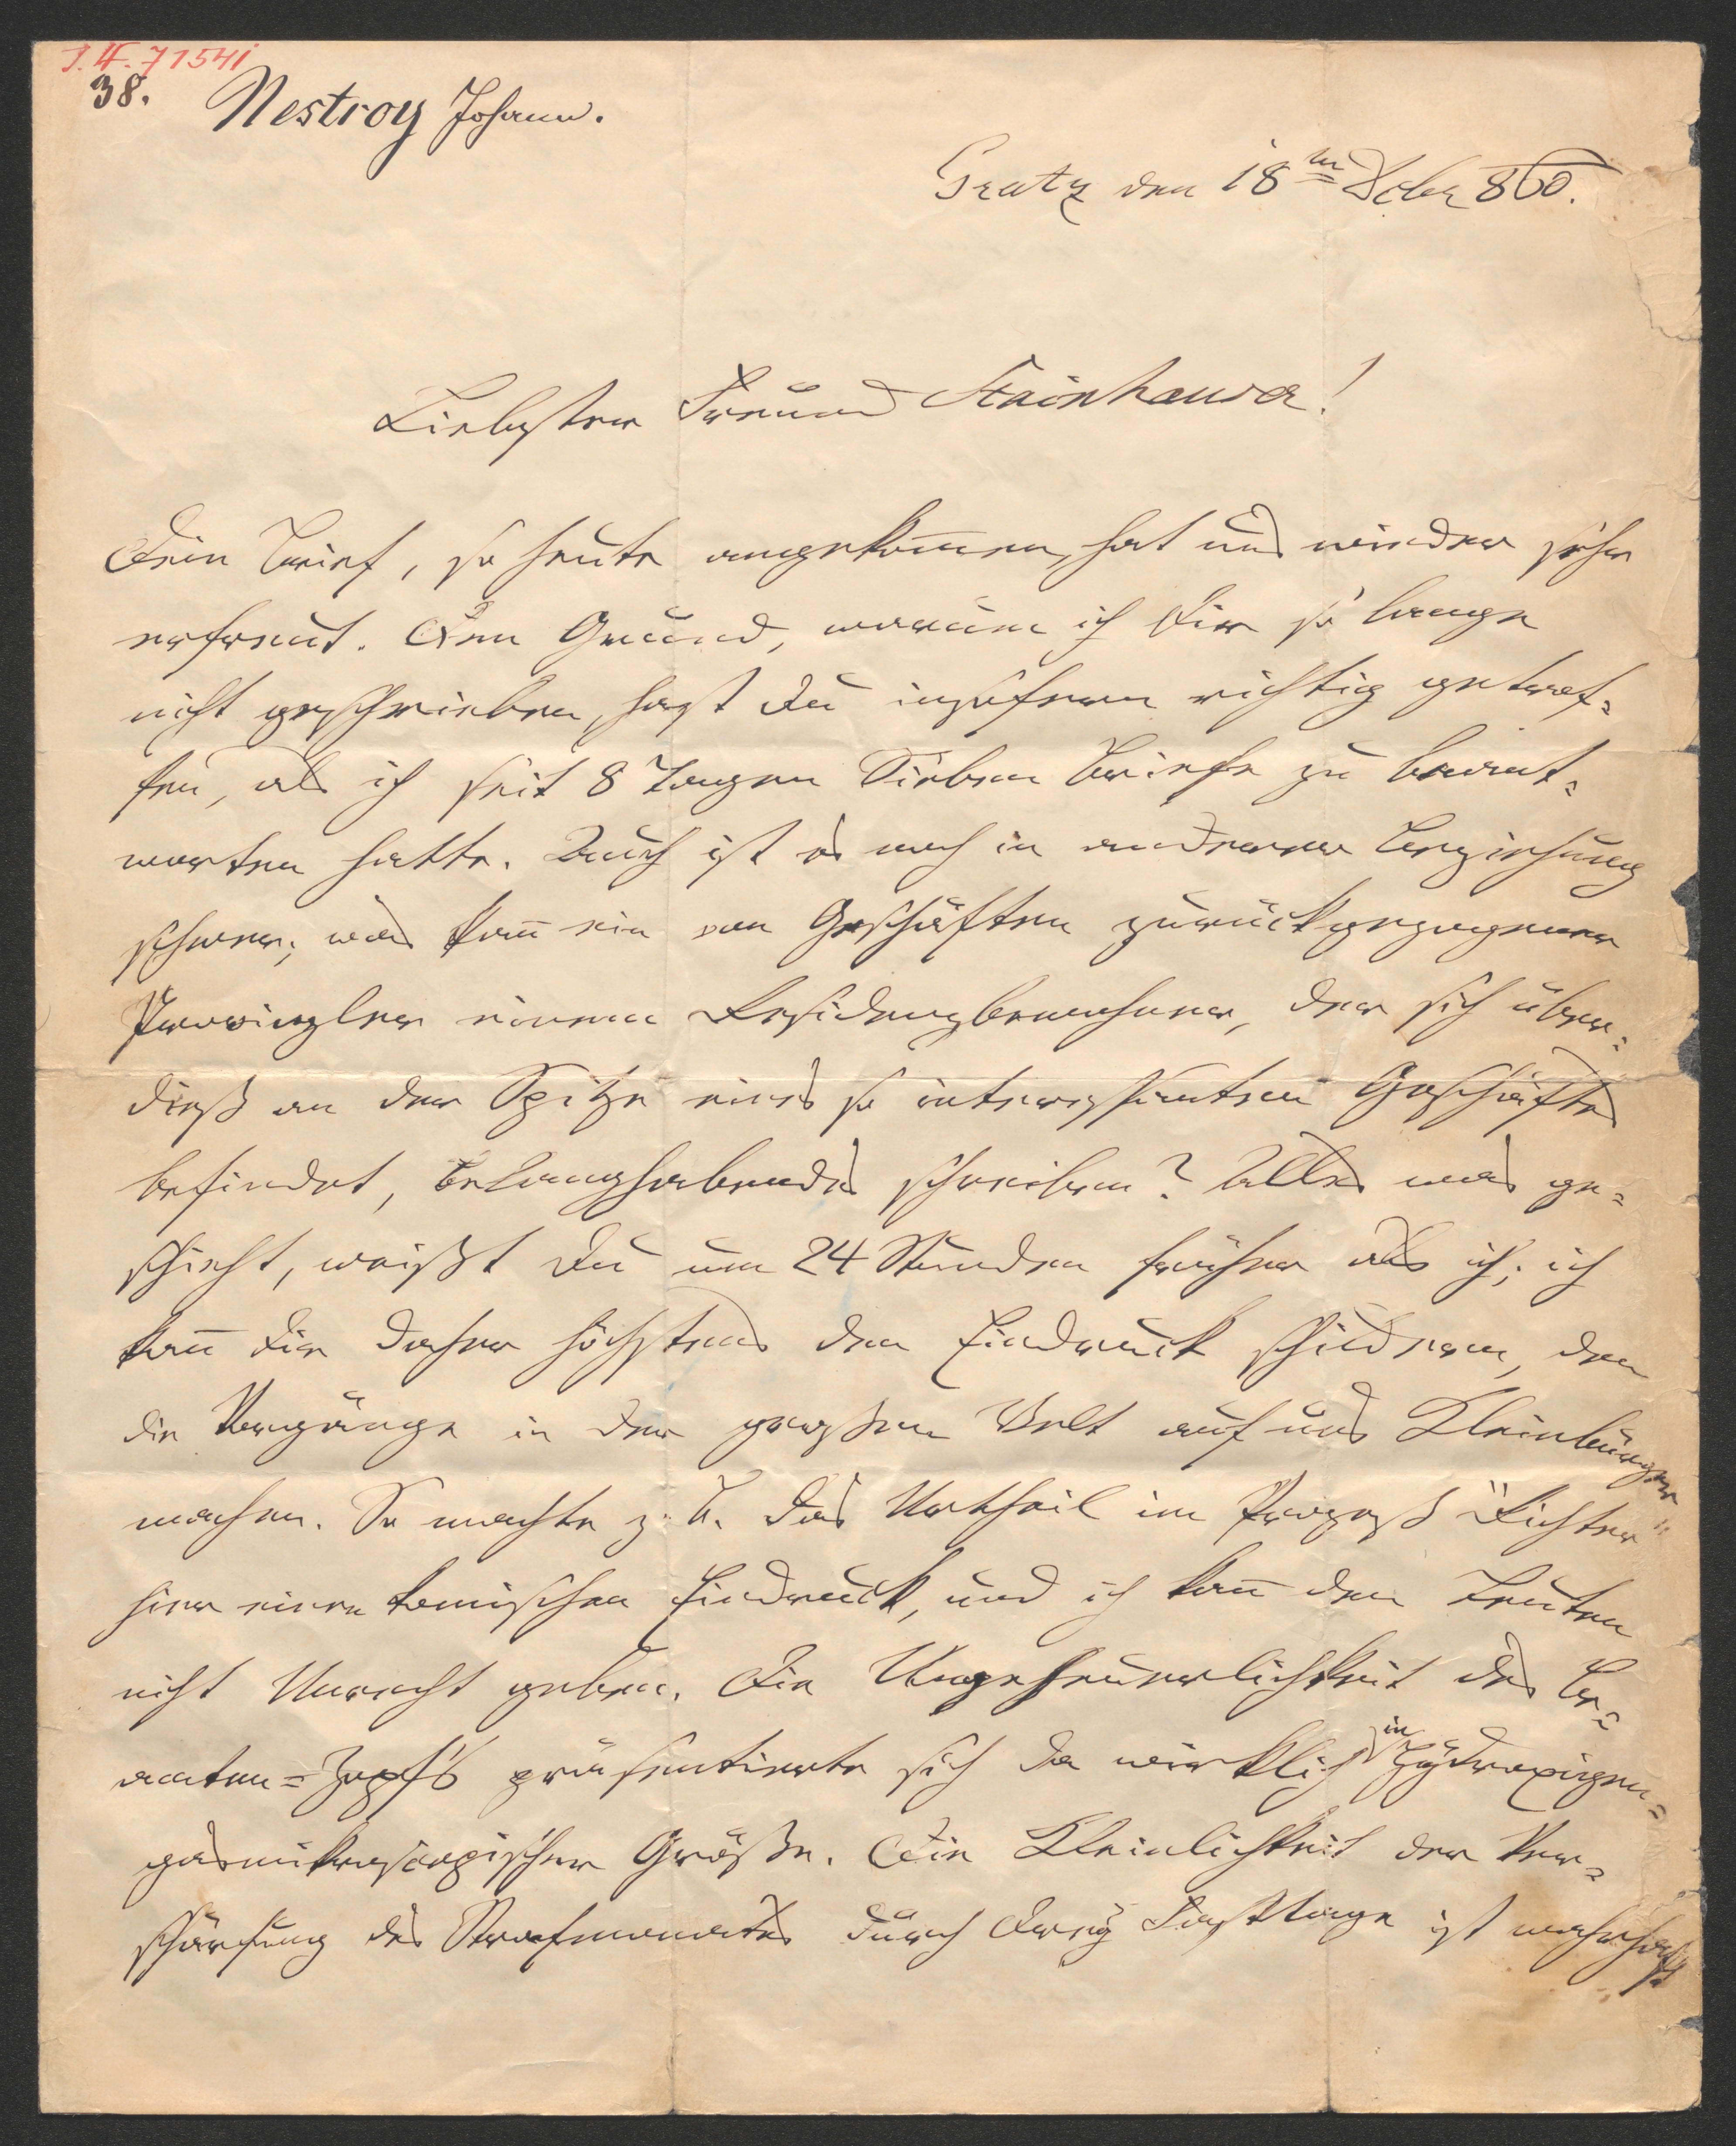 I. N. 71541
38. Nestroy Johann.
Gratz den 18ten Dcbr 860.
Liebster Freund Stainhauser!
Dein Brief, so heute angekom̄en, hat uns wieder sehr
erfreut. Den Grund, warum ich Dir so lange
nicht geschrieben, hast Du insofern richtig getrof=
fen, als ich seit 8 Tagen Sieben Briefe zu beant=
worten hatte. Auch ist es noch in anderer Beziehung
schwer; was kan̄ ein von Geschäften zurückgezogener
Provinzler einem Residenzbewohner, der sich über=
dieß an der Spitze eines so interessanten Geschäftes
befindet, Belanghabendes schreiben? Alles was ge=
schieht, weißt Du um 24 Stunden früher als ich; ich
kan̄ Dir daher höchstens den Eindruck schildern, den
die Vorgänge in der großen Welt auf uns Kleinbürger
machen. So machte z. B. das Urtheil im Prozeß "Richter"
hier einen komischen Eindruck, und ich kan̄ den Leuten
nicht Unrecht geben. Die Ungeheuerlichkeit des Be=
amten=Zopf's präsentierte sich da wirklich in Hydroxigen=
gasmikroscopischer Größe. Die Kleinlichkeit der Ver=
schärfung des Strafmonates durch Drey Fasttage ist wahrhaft